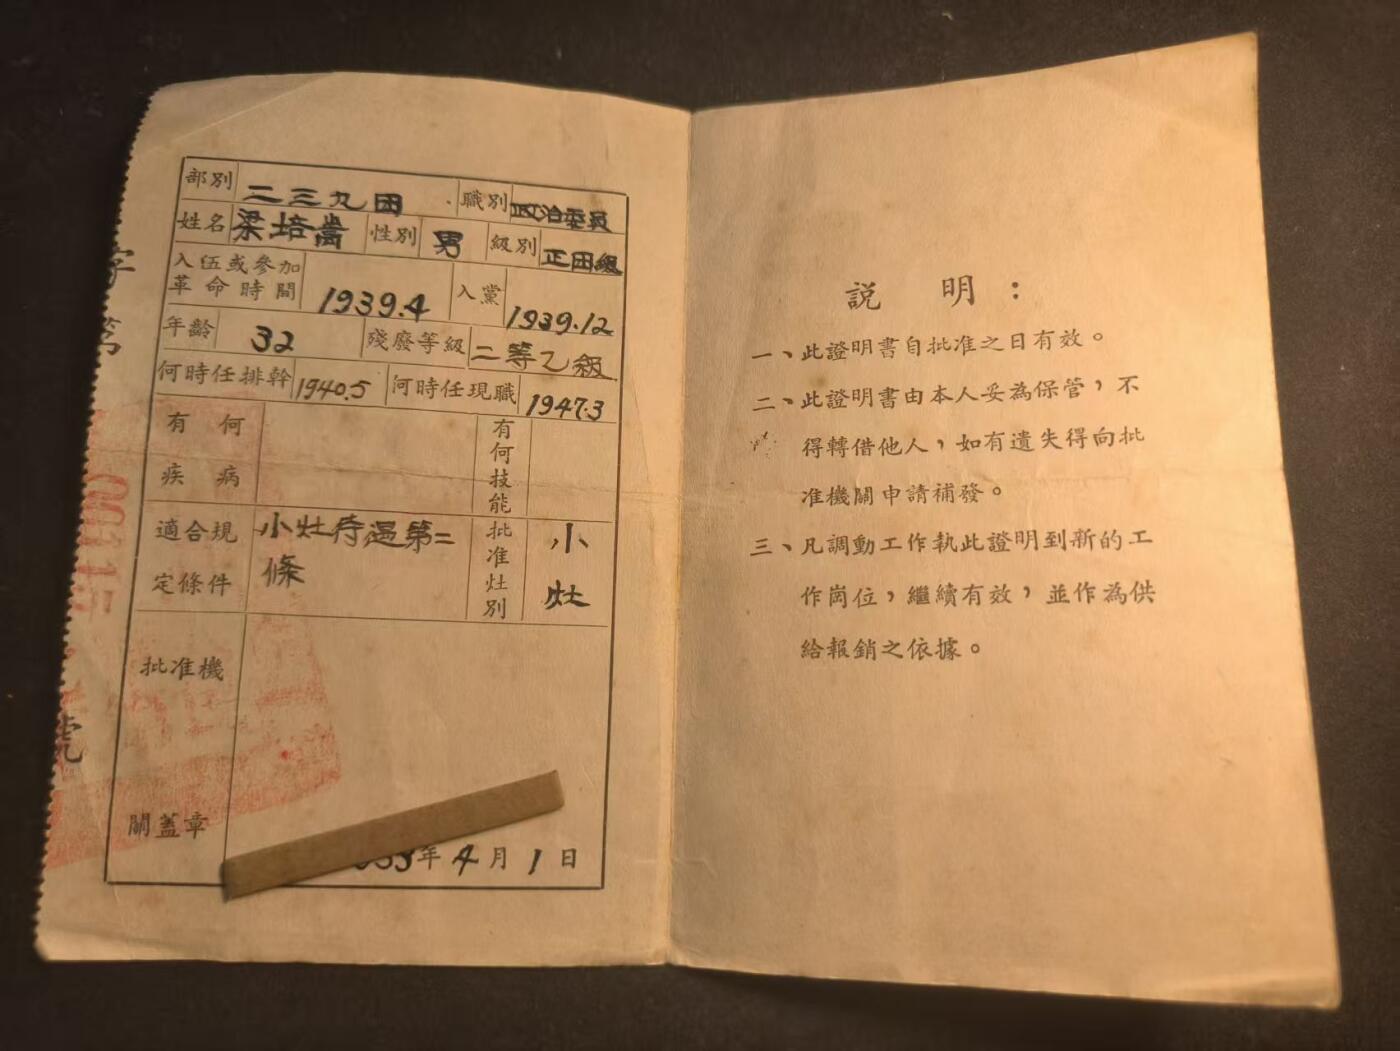 部別 二三九团 職別 政治委員
姓名 梁培嵩 性別 男 級別 正团級
入伍或參加革命時間 1939.4 入黨 1939.12
年齡 32 殘廢等級 二等乙級
何時任排幹 1940.5 何時任現職 1947.3
有何疾病 有何技能
適合規定條件 小灶待遇第二條 批准灶別 小灶
批准機關蓋章
53年4月1日
字第
號
說明：
一、此證明書自批准之日有效。
二、此證明書由本人妥為保管，不
得轉借他人，如有遺失得向批
准機關申請補發。
三、凡調動工作執此證明到新的工
作崗位，繼續有效，並作為供
給報銷之依據。